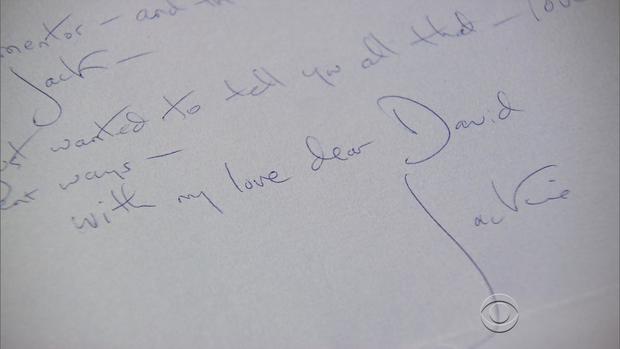 mentor – and th
Jack –
st wanted to tell you all that – love
ent ways –
with my love dear David
Jackie